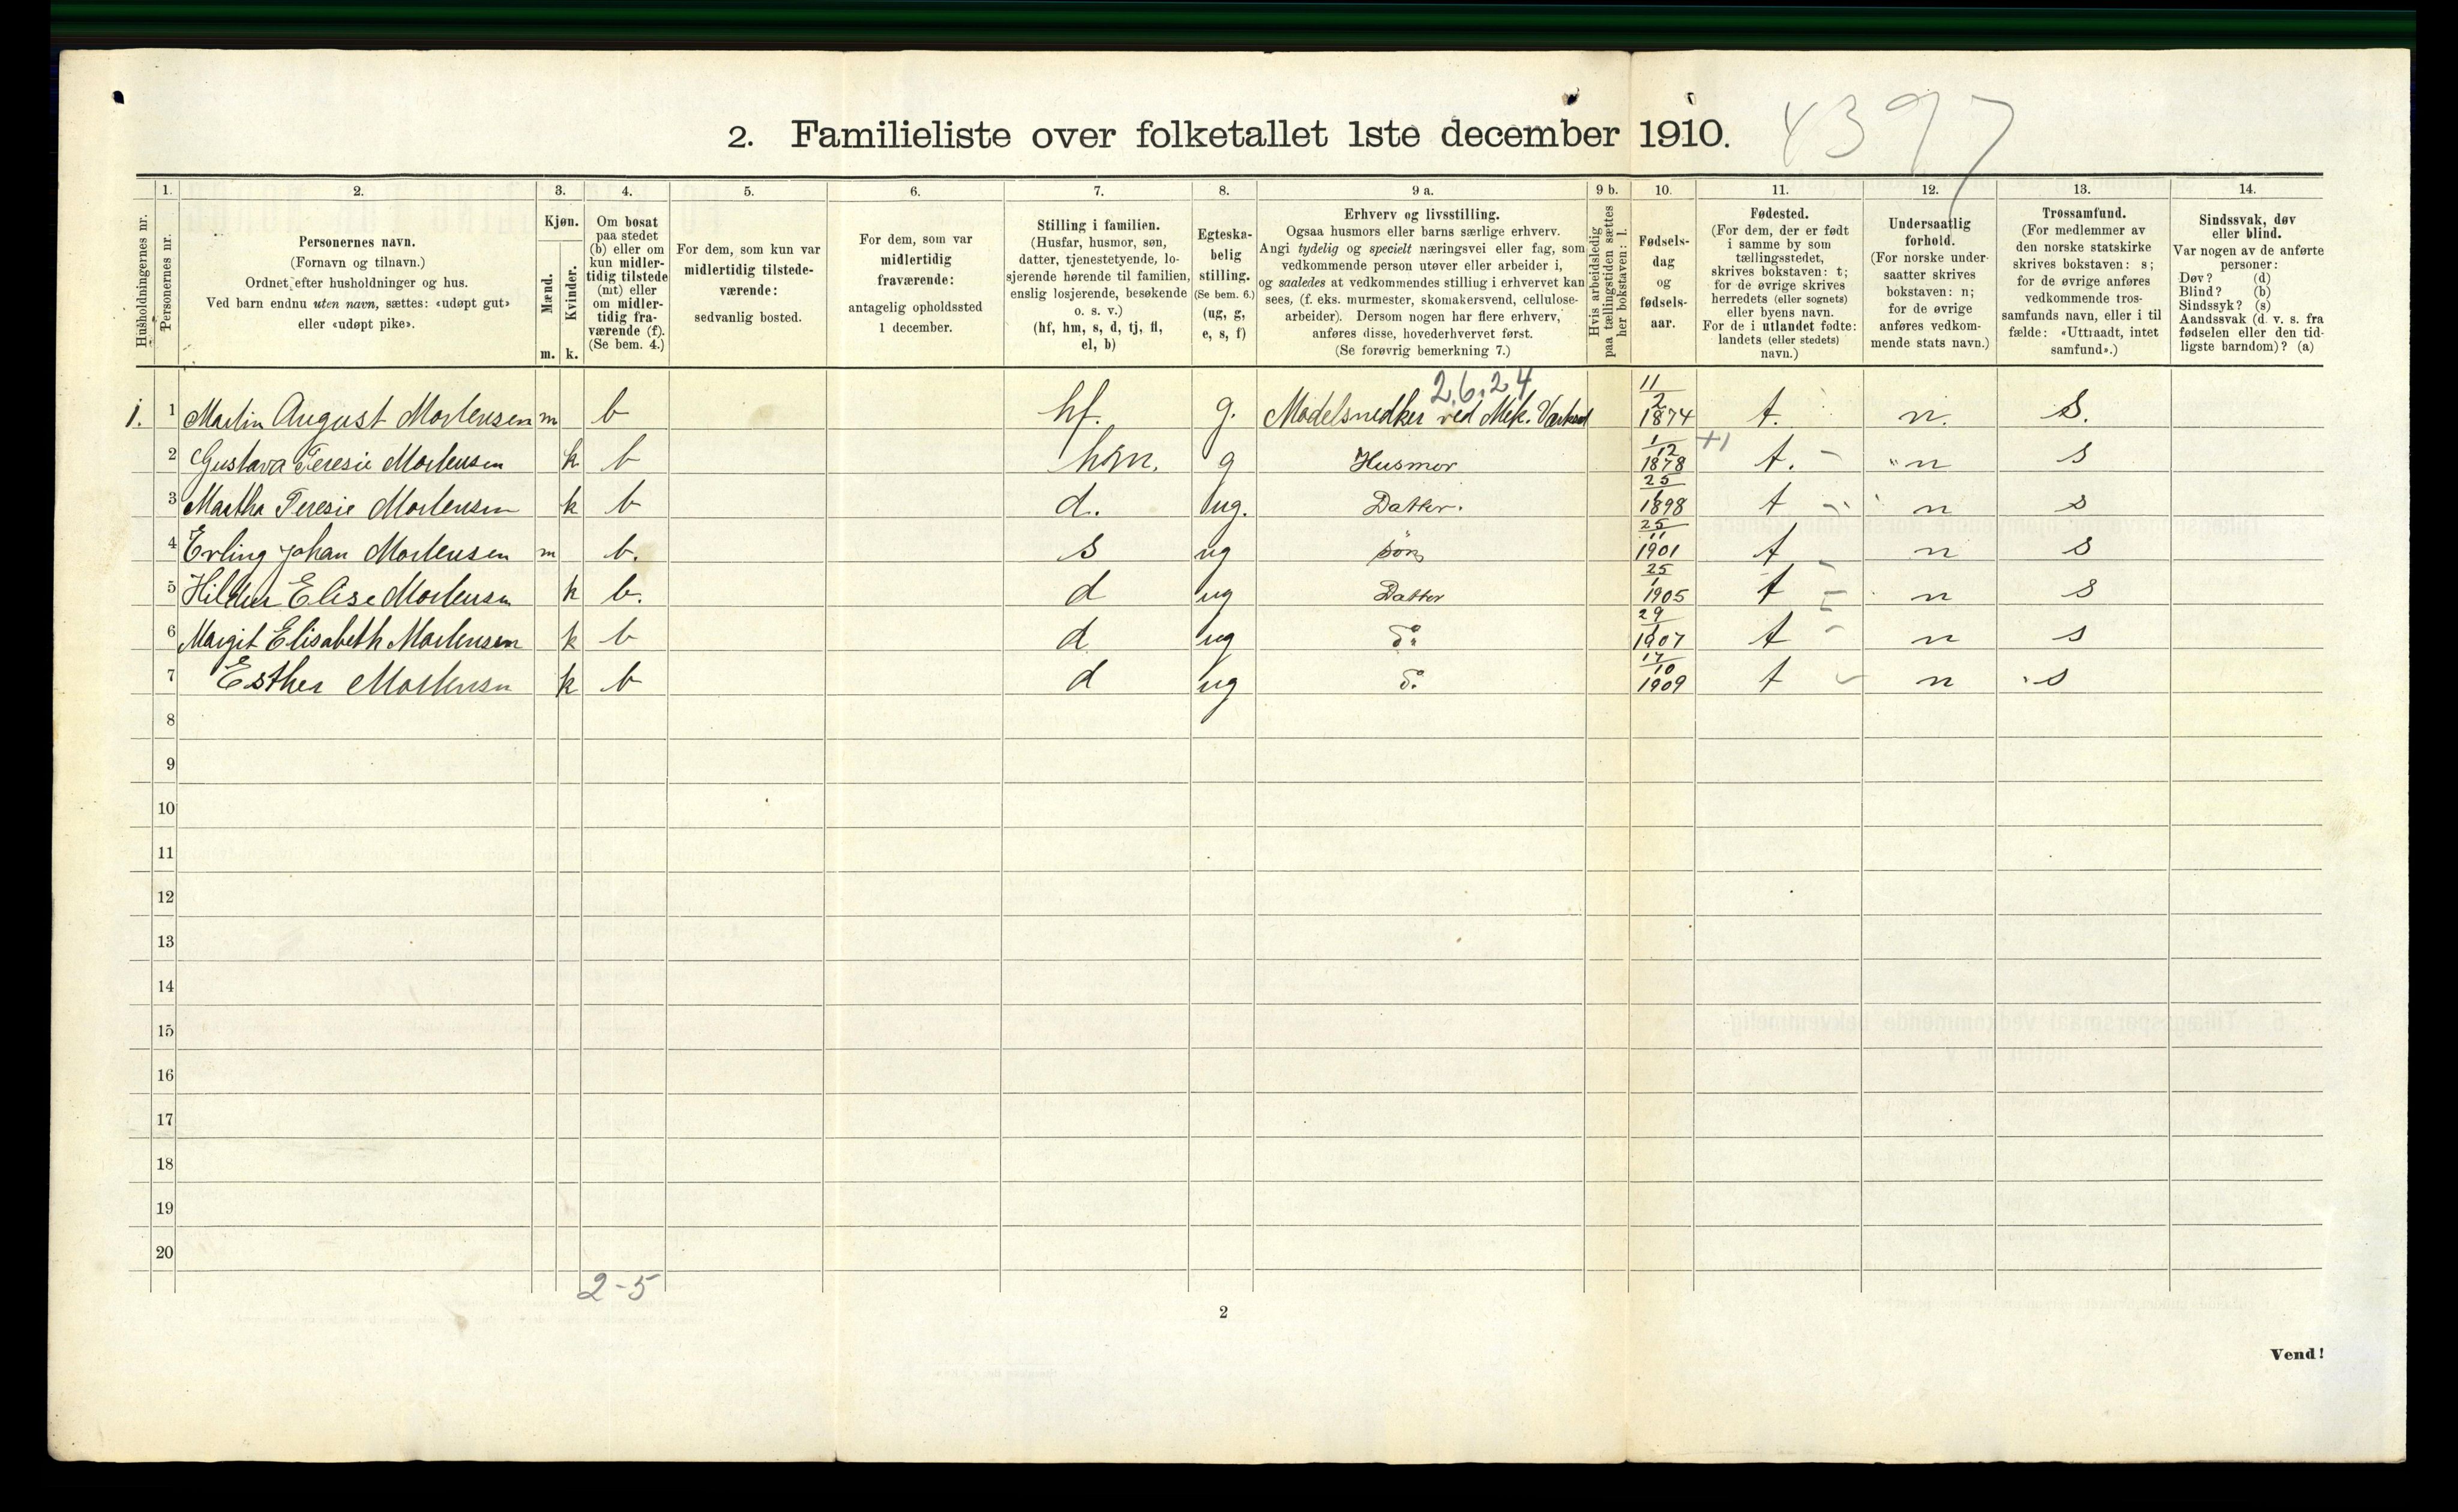 4397
2. Familieliste over folketallet 1ste december 1910.
Husholdningernes nr.
1. Personernes nr.
2. Personernes navn. (Fornavn og tilnavn.) Ordnet efter husholdninger og hus. Ved barn endnu uten navn, sættes: «udøpt gut» eller «udøpt pike».
3. Kjøn. Mænd. m. Kvinder. k.
4. Om bosat paa stedet (b) eller om kun midlertidig tilstede (mt) eller om midlertidig fraværende (f). (Se bem. 4.)
5. For dem, som kun var midlertidig tilstedeværende: sedvanlig bosted.
6. For dem, som var midlertidig fraværende: antagelig opholdssted 1 december.
7. Stilling i familien. (Husfar, husmor, søn, datter, tjenestetyende, losjerende hørende til familien, enslig losjerende, besøkende o. s. v.) (hf, hm, s, d, tj, fl, el, b)
8. Egteskabelig stilling. (Se bem. 6.) (ug, g, e, s, f)
9 a. Erhverv og livsstilling. Ogsaa husmors eller barns særlige erhverv. Angi tydelig og specielt næringsvei eller fag, som vedkommende person utøver eller arbeider i, og saaledes at vedkommendes stilling i erhvervet kan sees, (f. eks. murmester, skomakersvend, cellulosearbeider). Dersom nogen har flere erhverv, anføres disse, hovederhvervet først. (Se forøvrig bemerkning 7.)
9 b. Hvis arbeidsledig paa tællingstiden sættes her bokstaven: l.
10. Fødselsdag og fødselsaar.
11. Fødested. (For dem, der er født i samme by som tællingsstedet, skrives bokstaven: t; for de øvrige skrives herredets (eller sognets) eller byens navn. For de i utlandet fødte: landets (eller stedets) navn.)
12. Undersaatlig forhold. (For norske undersaatter skrives bokstaven: n; for de øvrige anføres vedkommende stats navn.)
13. Trossamfund. (For medlemmer av den norske statskirke skrives bokstaven: s; for de øvrige anføres vedkommende trossamfunds navn, eller i tilfælde: «Uttraadt, intet samfund».)
14. Sindssvak, døv eller blind. Var nogen av de anførte personer: Døv? (d) Blind? (b) Sindssyk? (s) Aandssvak (d. v. s. fra fødselen eller den tidligste barndom)? (a)
2.6.24
1. 1 Martin August Mortensen m b hf. g. Modelsnedker ved Mek. Verksted 11/2 1874 t. n. S.
2 Gustava Teresie Mortensen k b hm. g Husmor 1/12 1878 t. n s
3 Martha Teresie Mortensen k b d. ug. Datter. 25/1 1898 t n s
4 Erling Johan Mortensen m b. s ug søn 25/11 1901 t n s
5 Hildur Elise Mortensen k b. d ug Datter 25/1 1905 t n s
6 Margit Elisabeth Mortensen k b d ug do 29/1 1907 t n s
7 Esther Mortensen k b d ug do 17/10 1909 t n s
8
9
10
11
12
13
14
15
16
17
18
19
20
2-5
2
Vend!